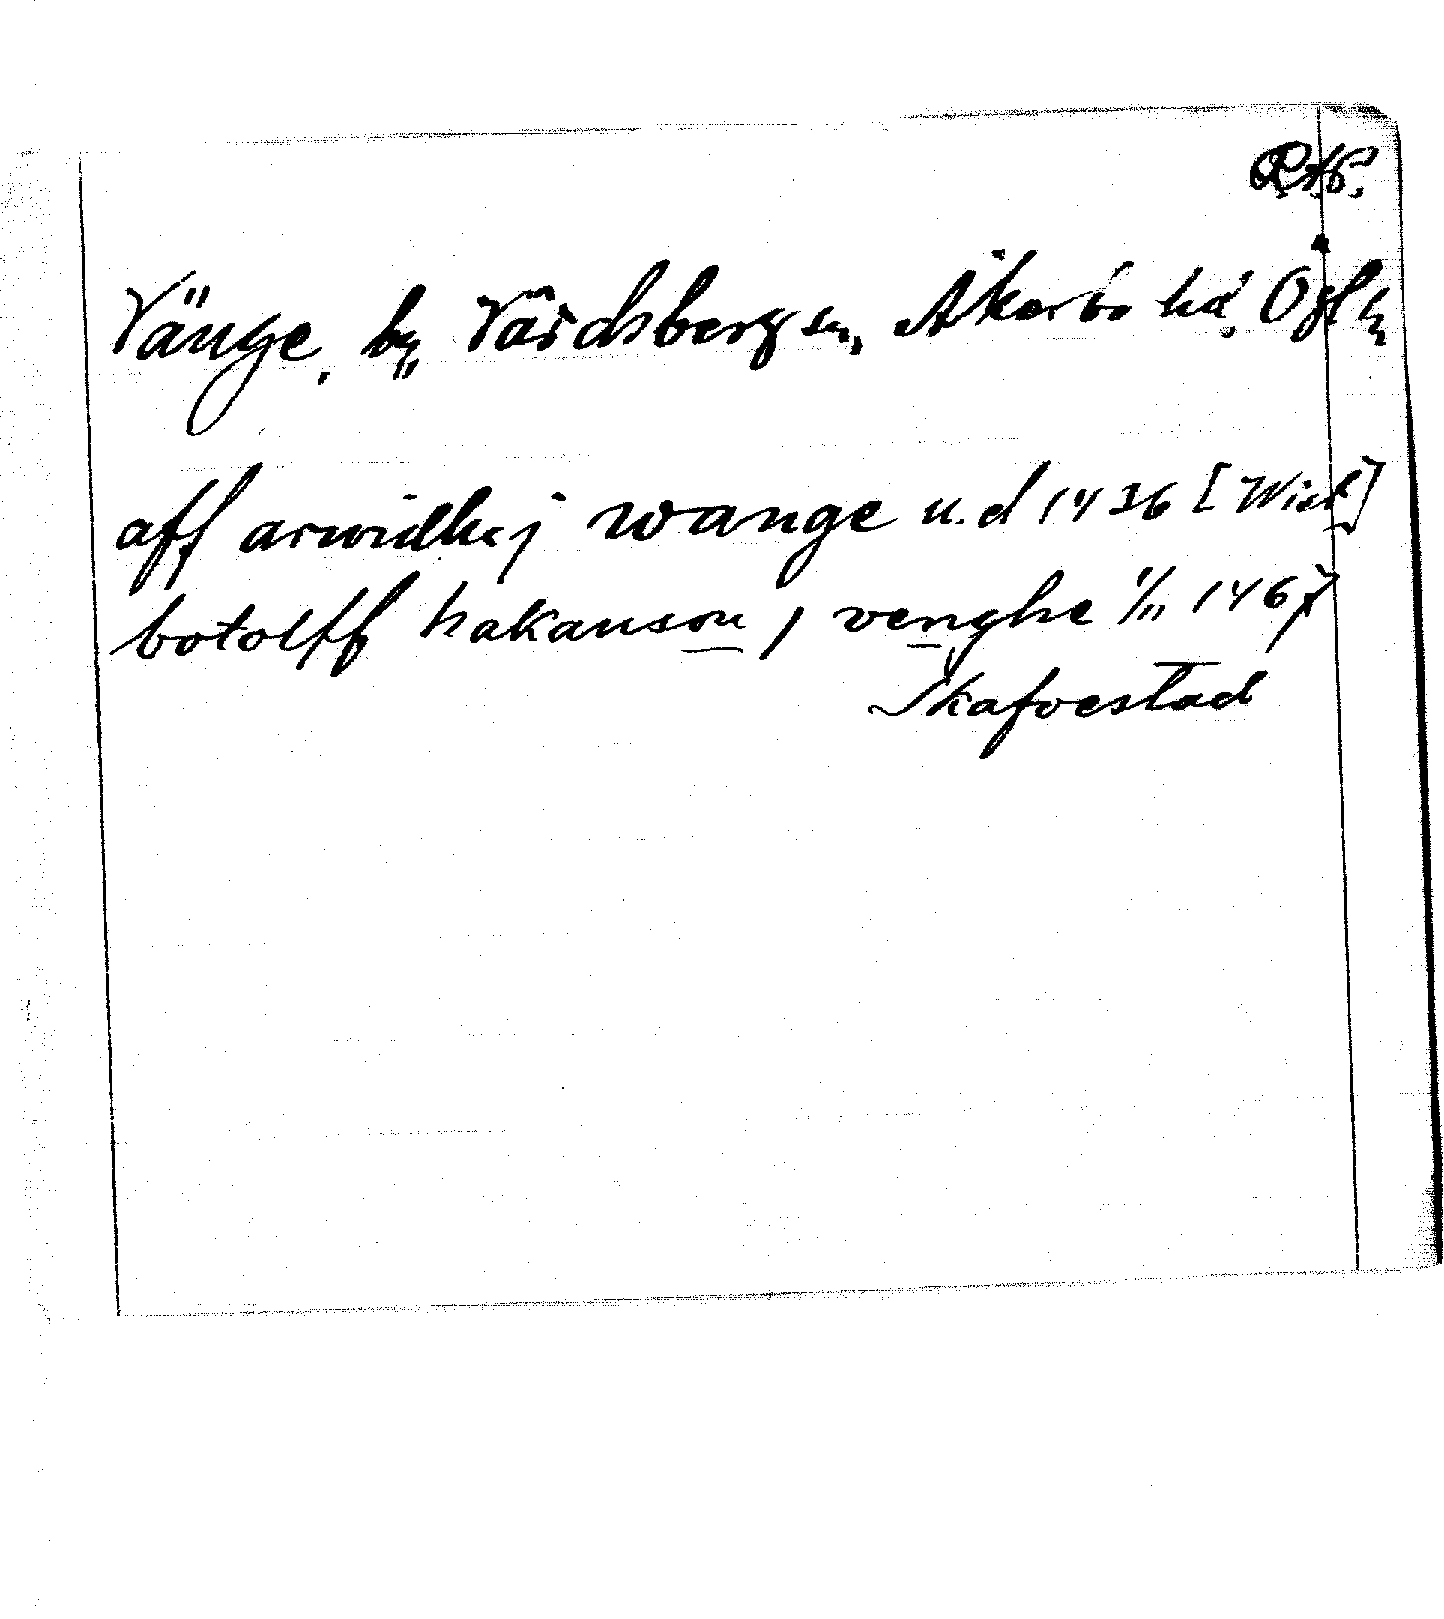 Vänge, by, Vårdsbergs sn, Åkerbo hd, Ögl
aff arwidhe j wange u.d 1436 [Wid]
botolff hakanson j venghe 1/11 1467
Skafvestad